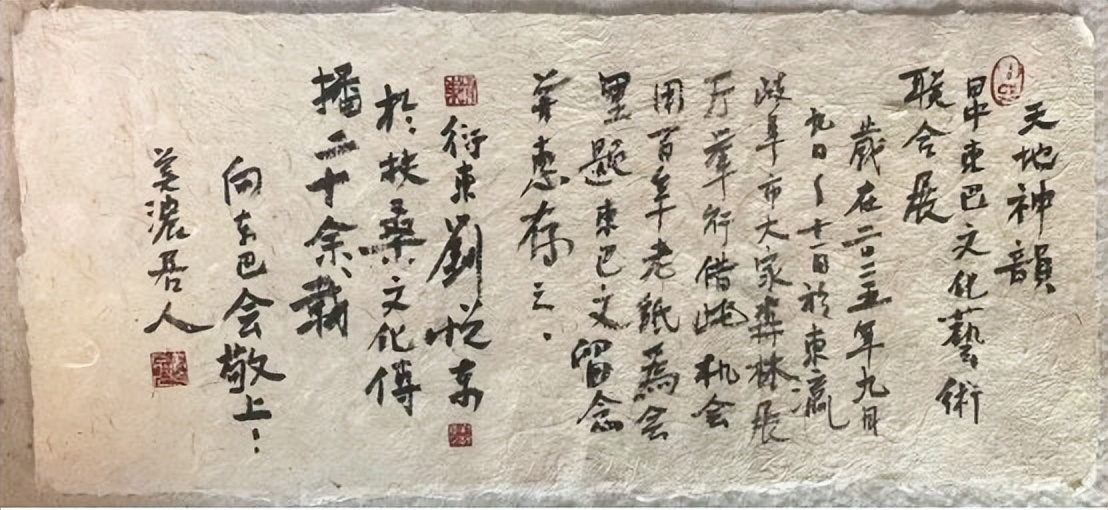 天地神韻
東巴文化藝術
联合展
歲在二〇二五年九月
九日～十一日於東瀛
岐阜市大家林展
厅举行借此机会
用百年老紙為会
里题東巴文留念
並惠存之.
衍東劉悦东
於扶桑文化傳
播二十余載
向东巴会敬上:
美濃人